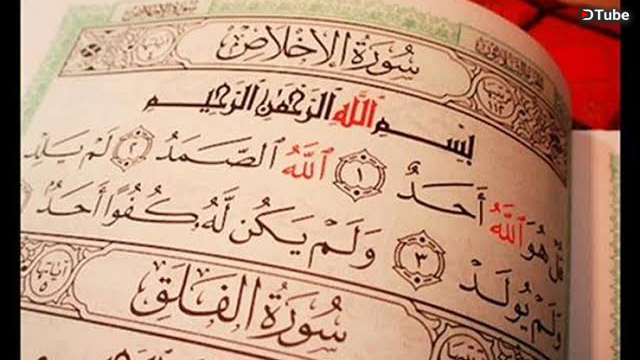 DTube
سُورَةُ الإِخْلَاصِ
بِسْمِ ٱللَّهِ ٱلرَّحْمَٰنِ ٱلرَّحِيمِ
قُلْ هُوَ ٱللَّهُ أَحَدٌ ١ ٱللَّهُ ٱلصَّمَدُ ٢ لَمْ يَلِدْ
وَلَمْ يُولَدْ ٣ وَلَمْ يَكُن لَّهُۥ كُفُوًا أَحَدٌۢ
آياتها ٥
سُورَةُ الفَلَقِ